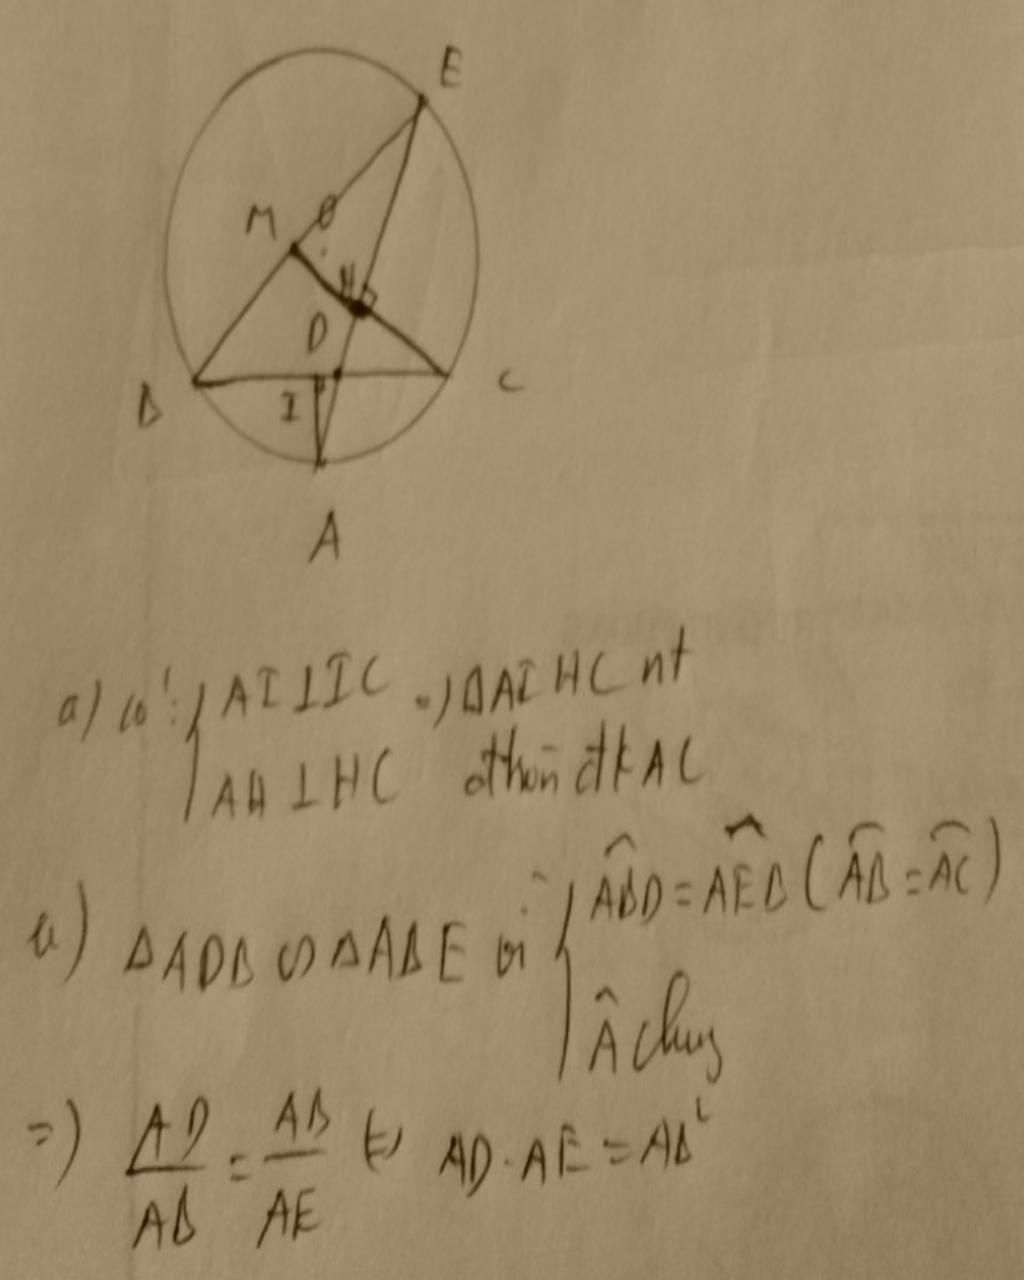 E
M O
H
D
B I C
A
a) có: { AI⊥IC => ◊AIHC nt
AH⊥HC đtròn đk AC
b) ΔADB ∽ ΔABE vì { \widehat{ABD} = \widehat{AEB} (\overset{\frown}{AB} = \overset{\frown}{AC})
\widehat{A} chung
=> \frac{AD}{AB} = \frac{AB}{AE} ⇔ AD.AE = AB²